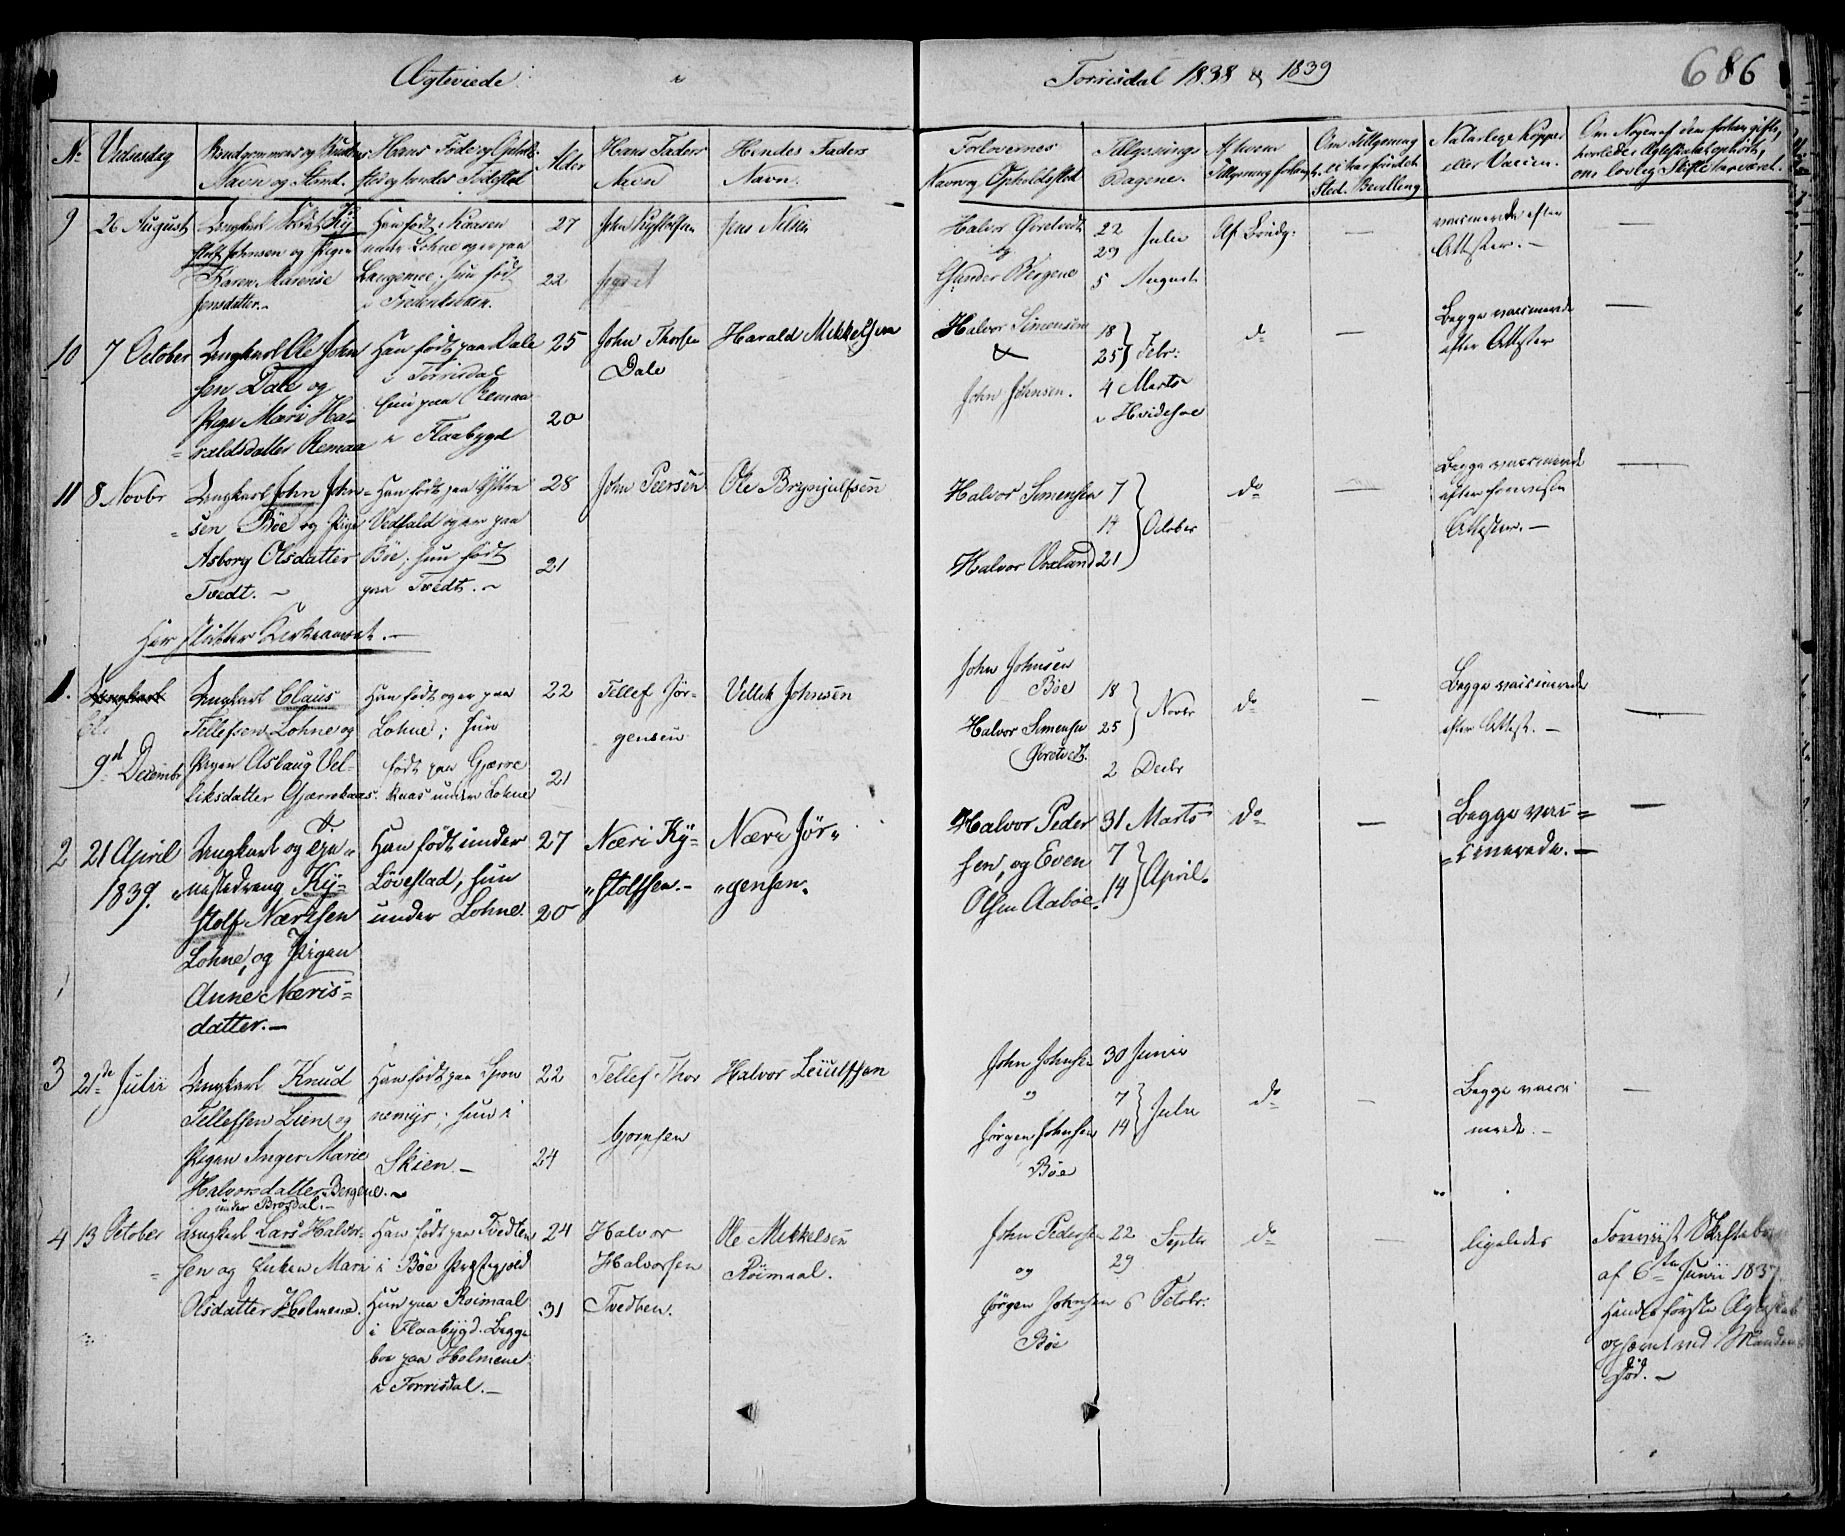 Ægteviede i Torrisdal 1838 & 1839
686
No
Vielsesdag
Brudgommens og Brudens
Navn og Stand.
Hans Føde og Opholds-
sted og hendes Fødested
Alder
Hans Faders
Navn
Hendes Faders
Navn.
Forlovernes
Navn og Opholdssted
Tillysnings
Dagene.
Af hvem
Tillysning forlangt
Om Tillysning
ei har fundet
Sted. Bevilling
Naturlige Kopper
eller Vaccin.
Om Nogen af dem forhen gifte,
hvorledes Ægteskabet ophørte,
om lovlig Skifte har været.
9
26 August
Ungkarl Ky-
stolf Johnsen og Pigen
Karen Marense
Jensdatter.
Han født Kaasen
under Lohne og er paa
Langemoe; hun født
i Frederiksværn.
27
22
John Kystolfsen
Jens Nilsen
Halvor Gvretvedt
og
Gunder Bergene
22
29 Julii
5 August
Af Brudg.
—
vaccinerede efter
Attester. —
—
10
7 October
Ungkarl Ole John
sen Dale og
Pige Mari Ha-
raldsdatter Remaa
Han født paa Dale
i Torrisdal
hun paa Remaa
i Flaabygd
25
20
John Thorsen
Dale
Harald Mikkelsen
Halvor Simensen
&
John Johnsen.
18
25 Febr:
4 Marts
i Hvidesøe
do
—
Begge vaccinerede
efter Attester
—
11
8 Novbr
Ungkarl John John
sen Bøe og Pige
Asborg Olsdatter
Tvedt. —
Han født paa Yttre
Vedfald og er paa
Bøe; hun født
paa Tvedt. —
28
21
John Peersen
Ole Brynjulfsen
Halvor Simensen
Halvor Voxland
7
14 October
21
do
—
Begge vaccinerede
efter foreviste
Attester. —
—
Her slutter Kirkeaaret. —
1.
9d Decembr
Ungkarl Claus
Tellefsen Lohne og
Pigen Aslaug Vel-
liksdatter Gjærrekaas.
Han født og er paa
Lohne; hun
født paa Gjerre
kaas under Lohne
22
21
Tellef Jør-
gensen
Vellik Johnsen
John Johnsen
Bøe
Halvor Simensen
Gvretvedt.
18
25 Novbr
2 Decbr
do
—
Begge vaccinerede
efter Attest. —
—
2
21 April
1839.
Ungkarl og
Ky-
stolf Nærisen
Lohne, og Pigen
Anne Næris-
datter. —
Han født under
Løvestad, hun
under Lohne.
27
20
Næri Ky-
stolfsen. —
Næri Jør-
gensen.
Halvor Peder
sen, og Even
Olsen Aabøe.
31 Marts
7
14 April.
do
—
Begge vac-
cinerede. —
—
3
21de Julii
Ungkarl Knud
Tellefsen Lien og
Pigen Inger Marie
Halvorsdatter Bergene
under Brosdal. —
Han født paa Spon
nemyr; hun i
Skien. —
22
24
Tellef Thor
bjørnsen
Halvor Leiulfsen
John Johnsen
og
Jørgen Johnsen
Bøe
30 Junii
7
14 Julii
do
—
Begge vacci
nerede. —
—
4
13 October
Ungkarl Lars Halvor-
sen og Enken Mari
Olsdatter Holmene.
Han født paa Tvedten
i Bøe Præstegjeld
Hun paa Roimaal
i Flaabygd. Begge
boe paa Holmene
i Torrisdal. —
24
31
Halvor
Halvorsen
Tvedten.
Ole Mikkelsen
Röimaal.
John Pedersen
og
Jørgen Johnsen
Bøe
22 Septer
29
6 Octobr.
do
—
ligeledes
Foreviist Skiftebrev
af 6te Junii 1837.
Hendes første Ægteskab
ophævet ved Mandens
Død. —